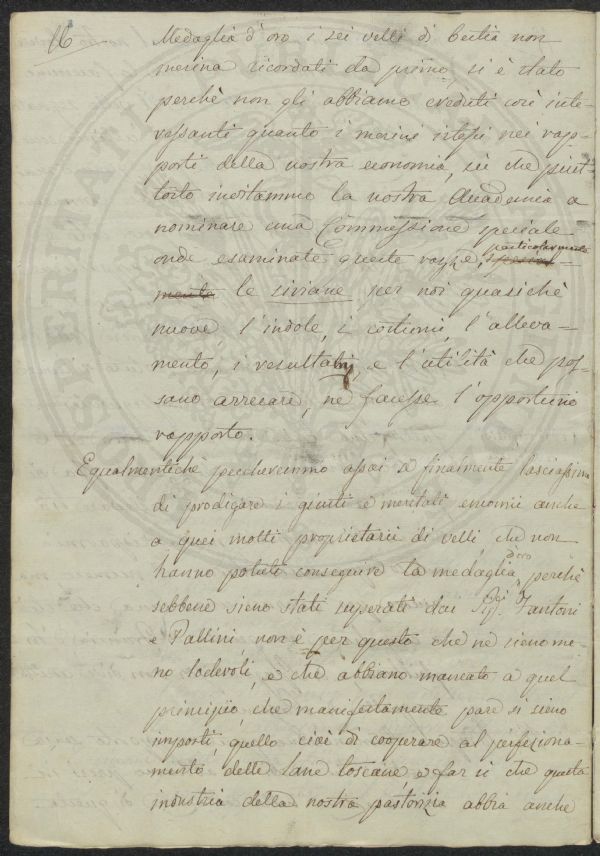 16
Medaglia d'oro i sei velli di bestia non
merina ricordati da primo si è stato
perchè non gli abbiamo creduti così inte-
ressanti quanto i merini istessi nei rap-
porti della nostra economia, sì che piut-
tosto invitammo la nostra Accademia a
nominare una Commissione speciale
onde esaminate queste razze, particolarmente special-
mente le siriane per noi quasichè
nuove, l'indole, i costumi, l'alleva-
mento, i resultati, e l'utilità che pos-
sano arrecare, ne facesse l'opportuno
rapporto.
Egualmentichè peccheremmo assai se finalmente lasciassimo
di prodigare i giusti e meritati encomii anche
a quei molti proprietarii di velli che non
hanno potuti conseguire la medaglia d'oro, perchè
sebbene sieno stati superati dai Sigg. Fantoni
e Pallini, non è per questo che ne sieno me-
no lodevoli, e che abbiano mancato a quel
principio, che manifestamente pare si sieno
imposti, quello cioè di cooperare al perfeziona-
mento delle lane toscane, e far sì che questa
industria della nostra pastorizia abbia anche